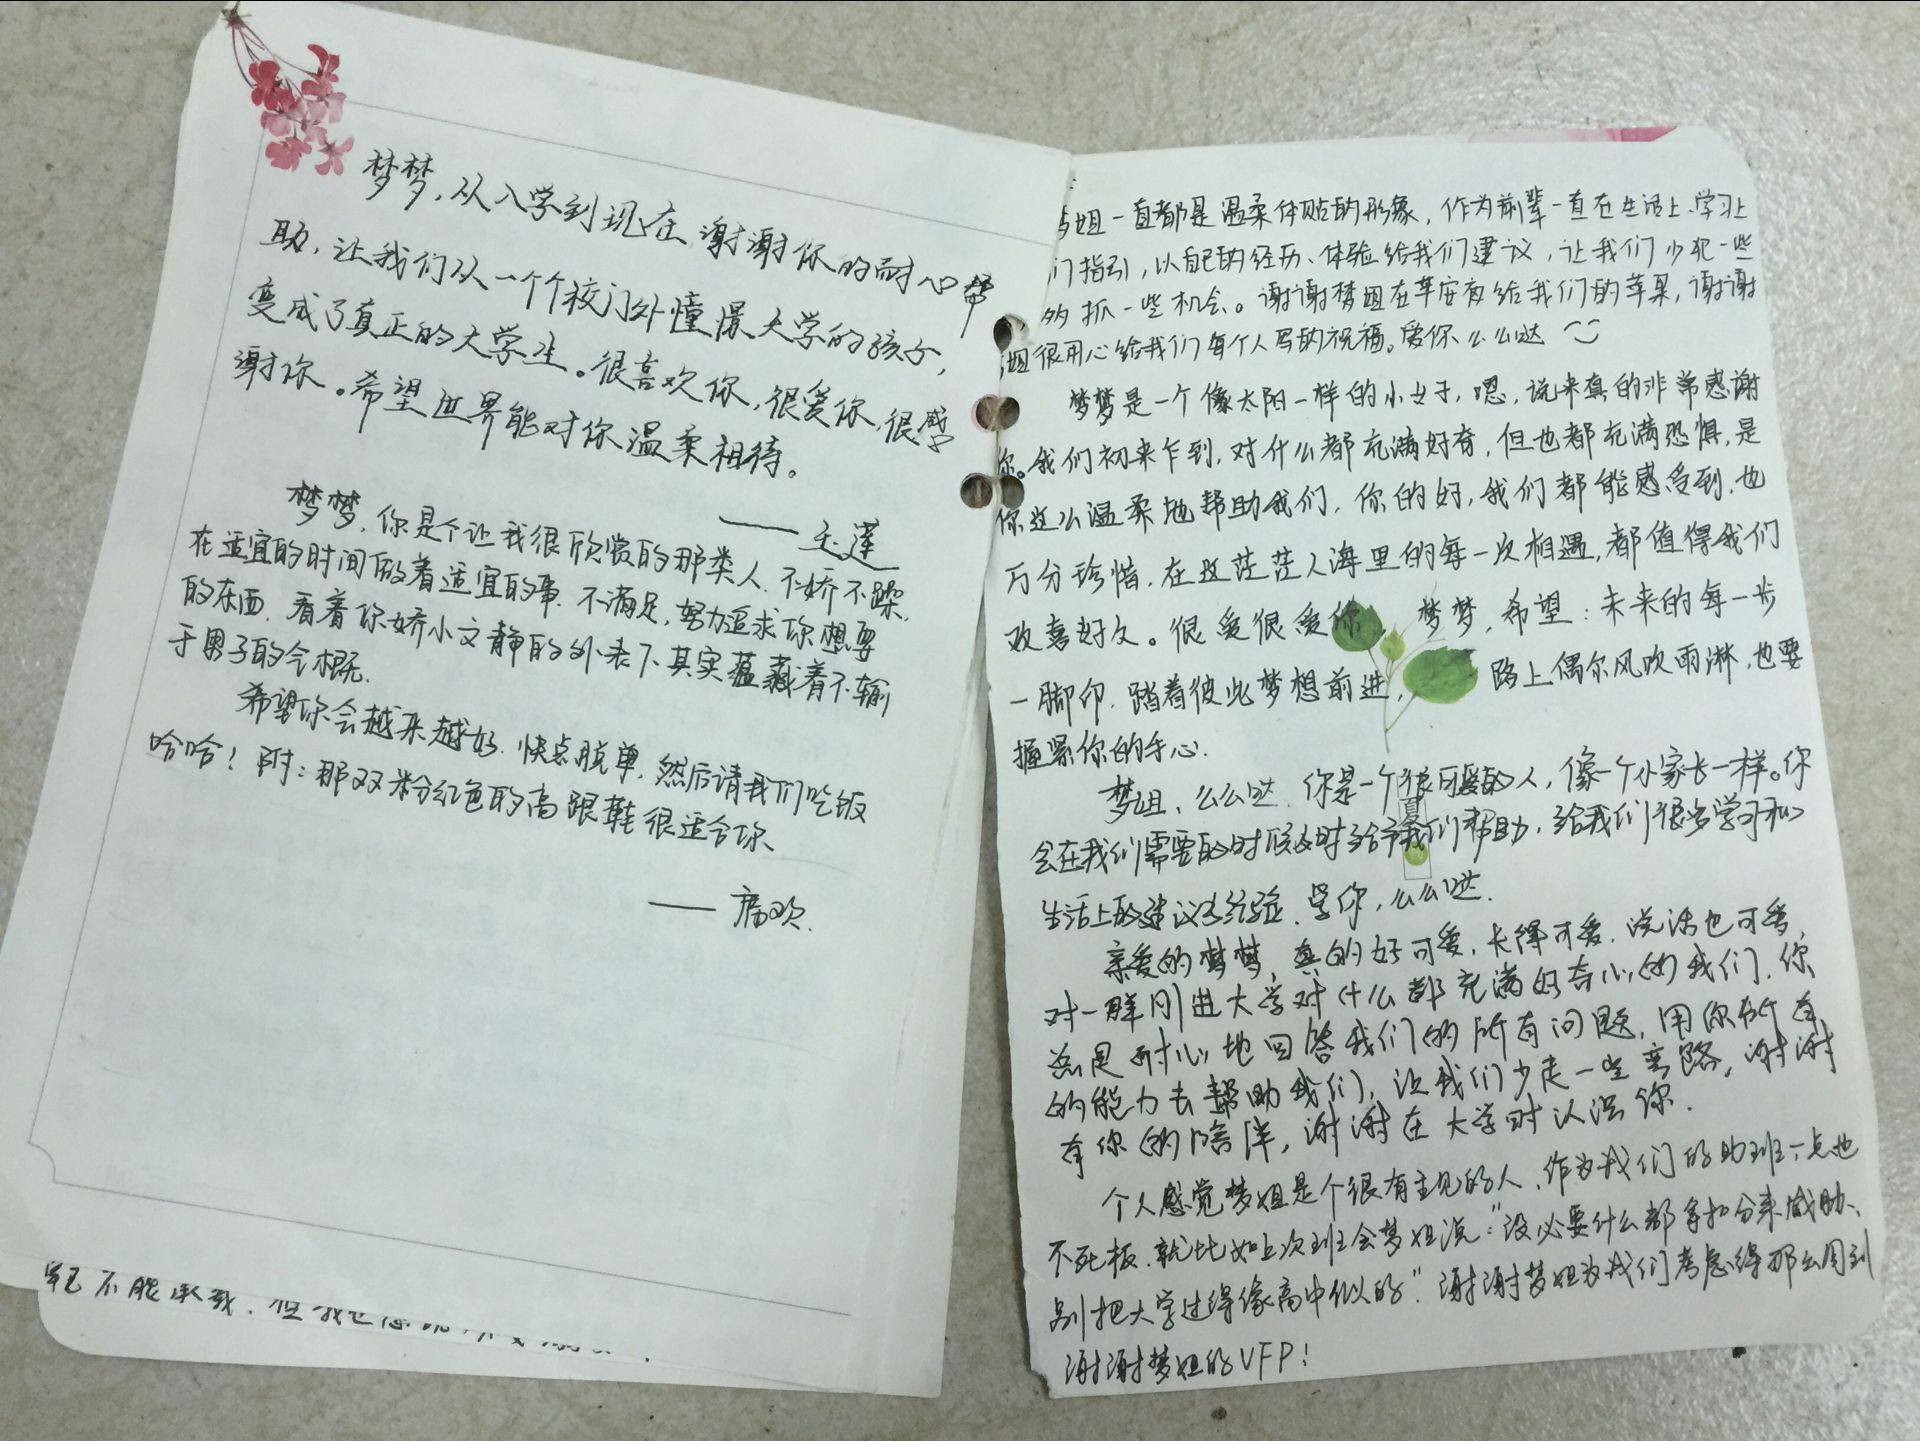 梦梦,从入学到现在,谢谢你的耐心帮
助,让我们从一个个校门外憧憬大学的孩子,
变成了真正的大学生。很喜欢你,很爱你,很感
谢你。希望世界能对你温柔相待。
——玉莲
梦梦,你是个让我很欣赏的那类人,不娇不躁,
在适宜的时间做着适宜的事,不满足,努力追求你想要
的东西,看着你娇小文静的外表下其实蕴藏着不输
于男子的气概.
希望你会越来越好.快点脱单,然后请我们吃饭
哈哈!附:那双粉红色的高跟鞋很适合你.
——席欢.
不能承载.但我也
姐一直都是温柔体贴的形象,作为前辈一直在生活上、学习上
们指引,以自己的经历、体验给我们建议,让我们少犯一些
的抓一些机会。谢谢梦姐在苹安夜给我们的苹果,谢谢
姐很用心给我们每个人写的祝福。爱你么么哒
梦梦是一个像太阳一样的小女子,嗯,说来真的非常感谢
你。我们初来乍到,对什么都充满好奇,但也都充满恐惧,是
你这么温柔地帮助我们,你的好,我们都能感受到,也
万分珍惜.在这茫茫人海里的每一次相遇,都值得我们
欢喜好久。很爱很爱你,梦梦,希望:未来的每一步
一脚印.踏着彼此梦想前进,路上偶尔风吹雨淋,也要
握紧你的手心.
梦姐,么么哒.你是一个很可爱的人,像一个小家长一样。你
会在我们需要的时候及时给予我们帮助,给我们很多学习和
生活上的建议与经验.爱你,么么哒.
亲爱的梦梦,真的好可爱,长得可爱,说话也可爱,
对一群刚进大学对什么都充满好奇心的我们,你
总是耐心地回答我们的所有问题,用你所有
的能力去帮助我们,让我们少走一些弯路,谢谢
有你的陪伴,谢谢在大学时认识你.
个人感觉梦姐是个很有主见的人,作为我们的助班一点也
不死板.就比如上次班会梦姐说:“没必要什么都拿扣分来威胁、
别把大学过得像高中似的.”谢谢梦姐为我们考虑得那么周到
谢谢梦姐的VFP!